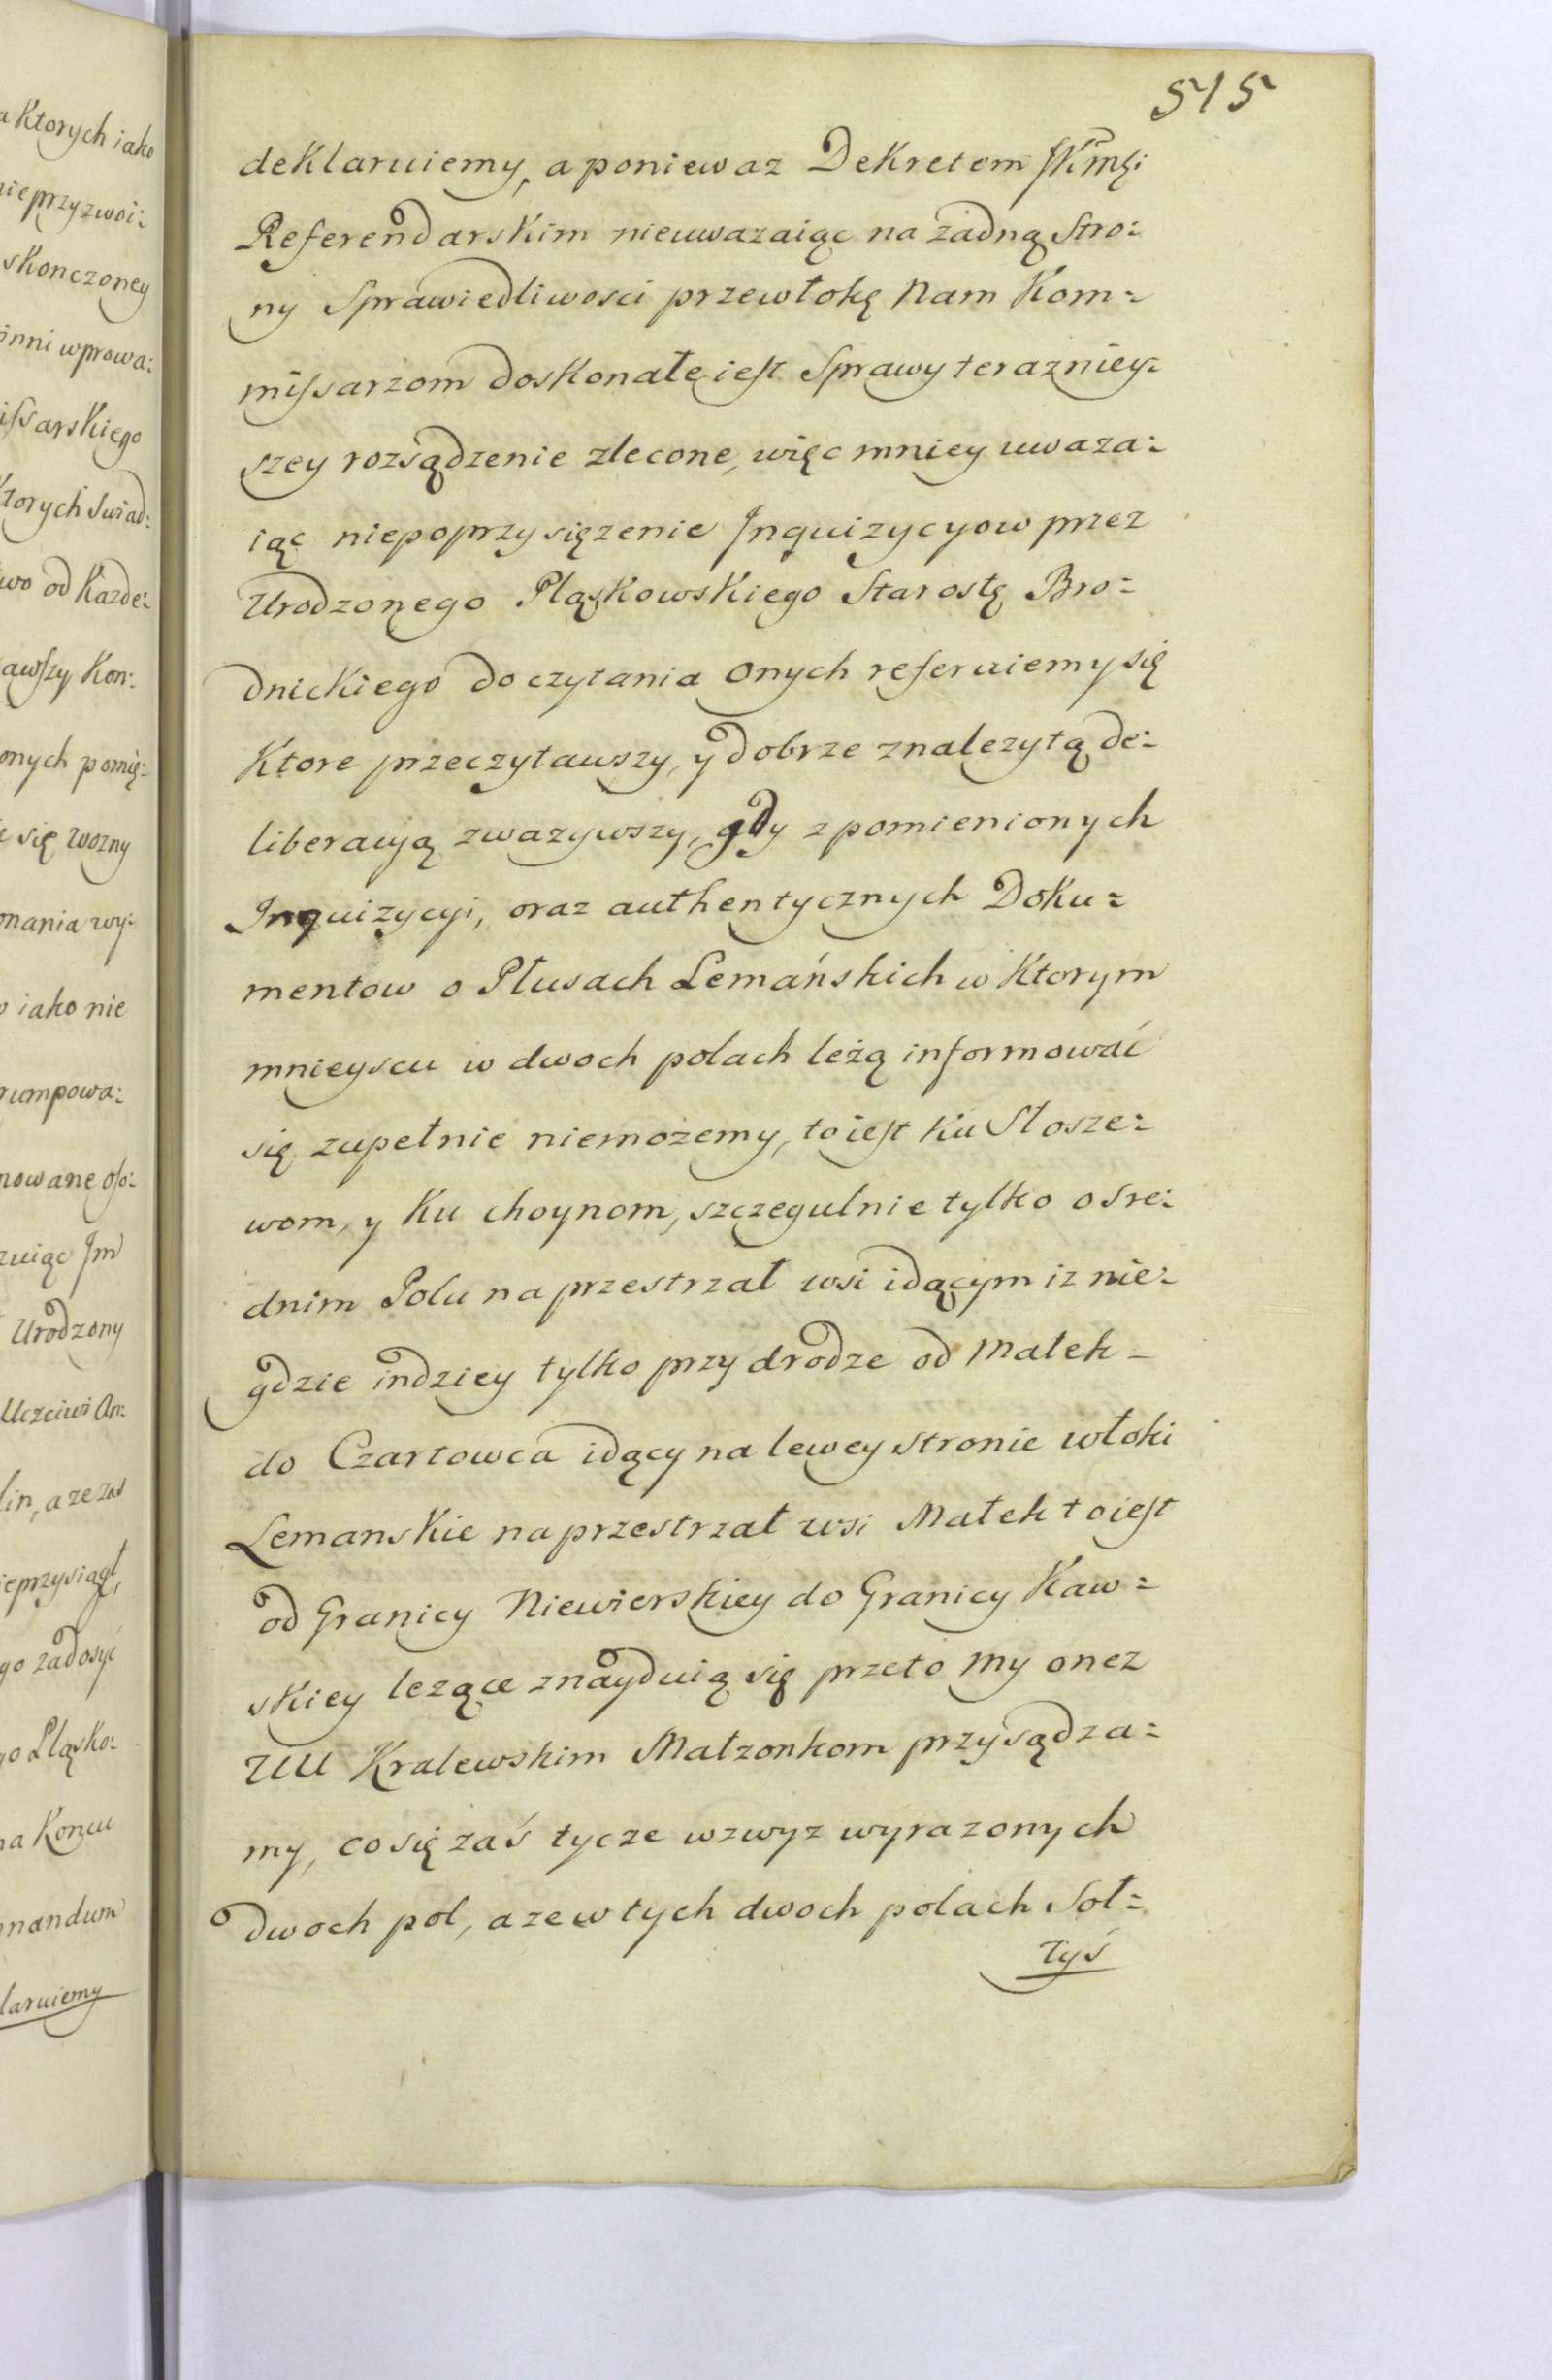 a Ktorych iako
nieprzyzwoi:
skonczoney
inni wprowa:
issarskiego
Ktorych Swiad:
two od Kazde:
awszy Kon:
onych pomię:
e się wozny
onania wy:
o iako nie
rumpowa:
nowane oso:
zuiąc Jm
Urodzony
Uczciwi An:
lin, a ze zas
ieprzysiągł,
go zadosyć
go Pląsko:
na Koncu
nandum
laruiemy
515
deklaruiemy, a poniewaz Dekretem
Referendarskim nieuwazaiąc na zadną Stro:
ny Sprawiedliwosci przewłokę Nam Kom=
missarzom doskonałe iest Sprawy terazniey=
szey rozsądzenie zlecone, więc mniey uwaza:
iąc niepoprzysięzenie Inquizycyow przez
Urodzonego Pląskowskiego Starostę Bro=
dnickiego do czytania onych referuiemy się
Ktore przeczytawszy, y dobrze znalezytą de:
liberacyą zwazywszy, gdy z pomienionych
Inquizycyi, oraz authentycznych Doku=
mentow o Płusach Lemańskich w Ktorym
mnieyscu w dwoch polach leżą informować
się zupełnie niemożemy, to iest Ku Słosze:
wom, y Ku choynom, szczegulnie tylko o sre:
dnim Polu na przestrzał wsi idącym iz nie:
gdzie indziey tylko przy drodze od Małek -
do Czartowca idący na lewey stronie włoki
Lemanskie na przestrzał wsi Małek to iest
od Granicy Niewierskiey do Granicy Kaw=
skiey lezące znayduią się przeto My onez
UU Kralewskim Małzonkom przysądza=
my, co się zaś tycze wzwyz wyrazonych
dwoch pol, a ze w tych dwoch polach Soł=
tyś